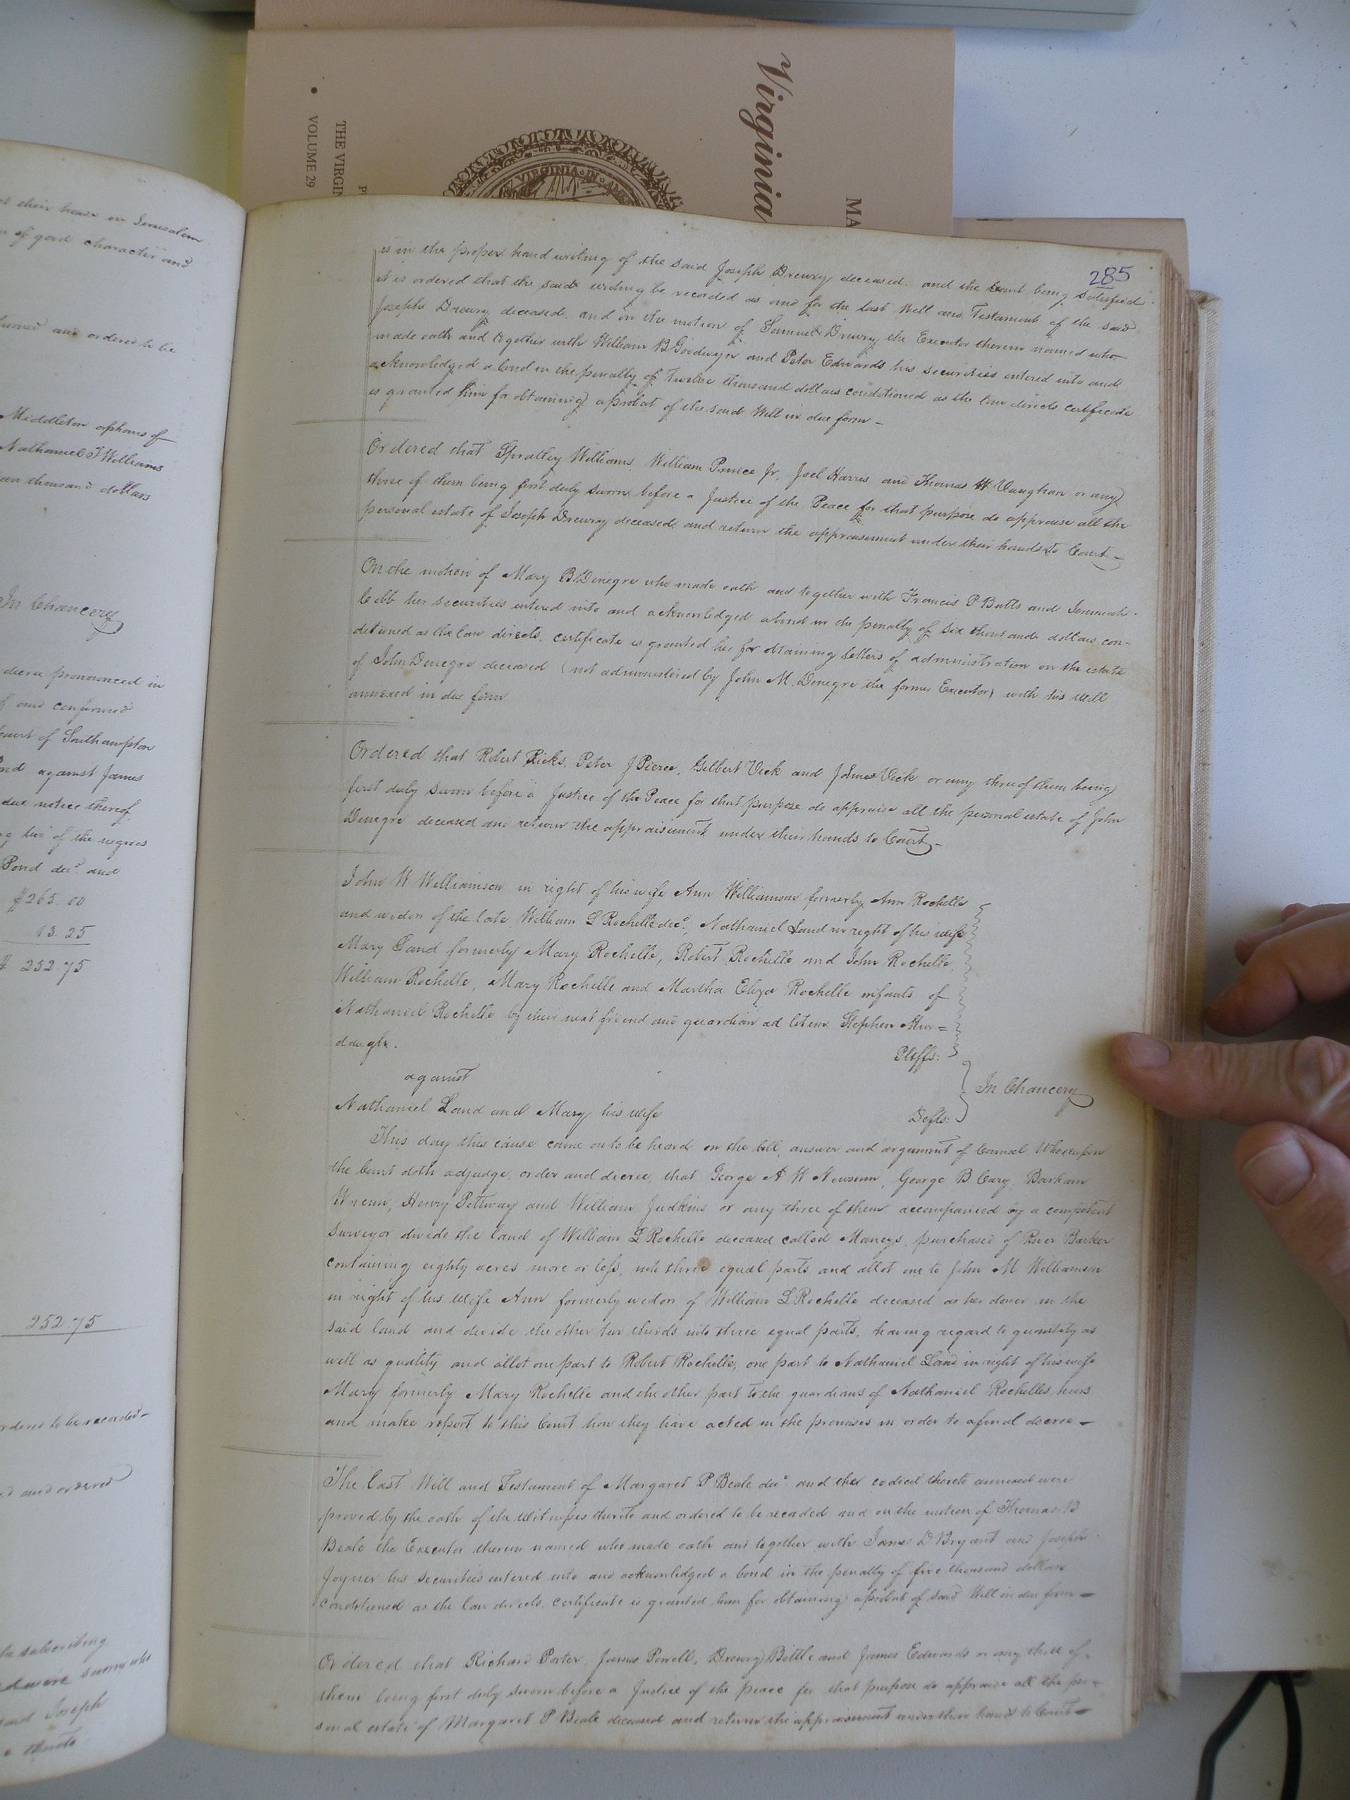 Virginia
MA
THE VIRGIN
VOLUME 29
VIRGINIA IN AM
285
at their house in Jerusalem
of good character and
and ordered to be
Middleton orphans of
Nathaniel T Williams
thousand dollars
In Chancery
decree pronounced in
and confirmed
Court of Southampton
and against James
due notice thereof
of the negroes
Pond decd and
$265.00
13.25
$ 252 75
252 75
ordered to be recorded
and ordered
subscribing
were sworn
said Joseph
is in the proper hand writing of the said Joseph Drewry deceased. and the Court being satisfied
it is ordered that the said writing be recorded as and for the last Will and Testament of the said
Joseph Drewry deceased. and on the motion of Samuel Drewry the Executor therein named who
made oath and together with William B Goodwyn and Peter Edwards his securities entered into and
acknowledged a bond in the penalty of Twelve thousand dollars conditioned as the law directs certificate
is granted him for obtaining a probat of the said Will in due form -
Ordered that Spratley Williams, William Prince Jr, Joel Harris and Thomas W Vaughan or any
three of them being first duly sworn before a Justice of the Peace for that purpose do appraise all the
personal estate of Joseph Drewry deceased and return the appraisement under their hands to Court -
On the motion of Mary B Denegre who made oath and together with Francis P Butts and Jeremiah
Cobb her securities entered into and acknowledged a bond in the penalty of six thousand dollars con-
ditioned as the law directs, certificate is granted her for obtaining letters of administration on the estate
of John Denegre deceased (not administered by John M. Denegre the former Executor) with his Will
annexed in due form
Ordered that Robert Ricks, Peter J Pierce, Gilbert Vick and James Vick or any three of them being
first duly sworn before a Justice of the Peace for that purpose do appraise all the personal estate of John
Denegre deceased and return the appraisement under their hands to Court -
John W Williamson in right of his wife Ann Williamson formerly Ann Rochelle
and widow of the late William L Rochelle decd, Nathaniel Land in right of his wife
Mary Land formerly Mary Rochelle, Robert Rochelle and John Rochelle
William Rochelle, Mary Rochelle and Martha Eliza Rochelle infants of
Nathaniel Rochelle by their next friend and guardian ad litem Stephen Mur=
daugh.
Pltffs:
against
In Chancery
Nathaniel Land and Mary his wife
Defts:
This day this cause came on to be heard on the bill, answer and argument of Counsel Whereupon
the Court doth adjudge, order and decree, that George A W Newsum, George B Cary, Barham
Wrenn, Henry Pettway and William Judkins or any three of them accompanied by a competent
surveyor divide the land of William L Rochelle deceased called Maneys, purchased of River Barker
containing eighty acres more or less, into three equal parts and allot one to John M Williamson
in right of his wife Ann formerly widow of William L Rochelle deceased as her dower in the
said land and divide the other two thirds into three equal parts, having regard to quantity as
well as quality and allot one part to Robert Rochelle, one part to Nathaniel Land in right of his wife
Mary formerly Mary Rochelle and the other part to the guardians of Nathaniel Rochelles heirs
and make report to this Court how they have acted in the premises in order to a final decree -
The Last Will and Testament of Margaret P Beale decd and the codicil thereto annexed were
proved by the oath of the Witnesses thereto and ordered to be recorded and on the motion of Thomas B
Beale the Executor therein named who made oath and together with James D Bryant and Joseph
Joyner his securities entered into and acknowledged a bond in the penalty of five thousand dollars
conditioned as the law directs, certificate is granted him for obtaining a probat of said Will in due form -
Ordered that Richard Porter, James Powell, Drewry Bittle and James Edwards or any three of
them being first duly sworn before a Justice of the peace for that purpose do appraise all the per-
sonal estate of Margaret P Beale deceased and return the appraisement under their hands to Court -